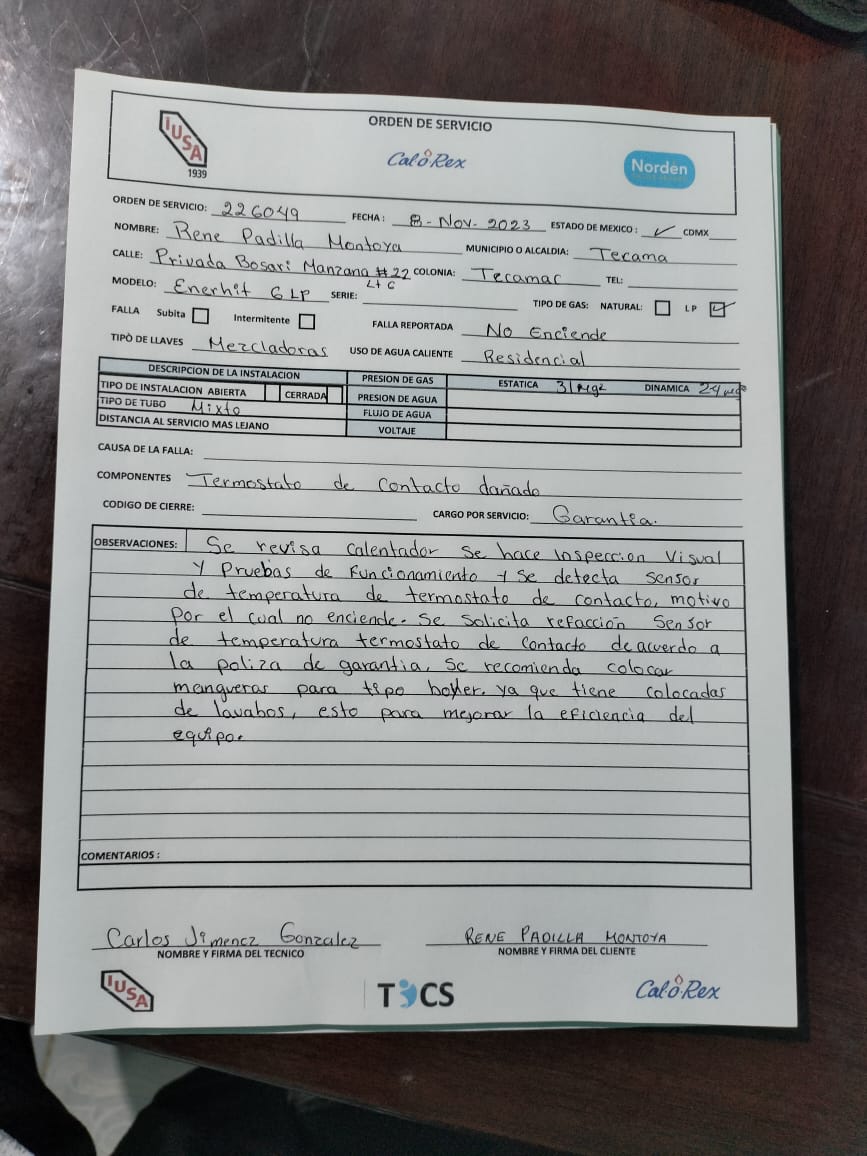 ORDEN DE SERVICIO
IUSA
1939
Calorex
Norden
ORDEN DE SERVICIO: 226049 FECHA: 8-Nov-2023 ESTADO DE MEXICO: ✓ CDMX
NOMBRE: Rene Padilla Montoya MUNICIPIO O ALCALDIA: Tecama
CALLE: Privada Bosari Manzana #22 COLONIA: Tecamac TEL:
Lt 6
MODELO: Enerhit 6 LP SERIE: TIPO DE GAS: NATURAL: ☐ LP ☑
FALLA Subita ☐ Intermitente ☐ FALLA REPORTADA No Enciende
TIPO DE LLAVES Mezcladoras USO DE AGUA CALIENTE Residencial
DESCRIPCION DE LA INSTALACION PRESION DE GAS ESTATICA 31 DINAMICA 24
TIPO DE INSTALACION ABIERTA CERRADA PRESION DE AGUA
TIPO DE TUBO Mixto FLUJO DE AGUA
DISTANCIA AL SERVICIO MAS LEJANO VOLTAJE
CAUSA DE LA FALLA:
COMPONENTES Termostato de contacto dañado
CODIGO DE CIERRE: CARGO POR SERVICIO: Garantia.
OBSERVACIONES: Se revisa calentador se hace inspeccion visual
y Pruebas de Funcionamiento y se detecta sensor
de temperatura de termostato de contacto, motivo
por el cual no enciende. Se solicita refacción Sensor
de temperatura termostato de contacto de acuerdo a
la poliza de garantia, Se recomienda colocar
mangueras para tipo boyler. ya que tiene colocadas
de lavabos, esto para mejorar la eficiencia del
equipo.
COMENTARIOS :
Carlos Jimenez Gonzalez RENE PADILLA MONTOYA
NOMBRE Y FIRMA DEL TECNICO NOMBRE Y FIRMA DEL CLIENTE
IUSA TOCS Calorex